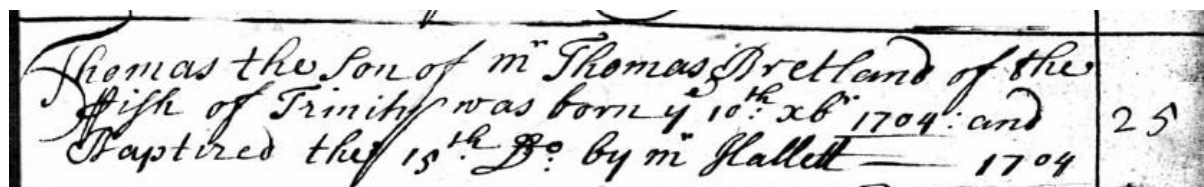 Thomas the Son of mr Thomas Bretland of the
Pish of Trinity was born ye 10th: xbr 1704: and
Baptized the 15th: Do: by mr Hallett — 1704
25